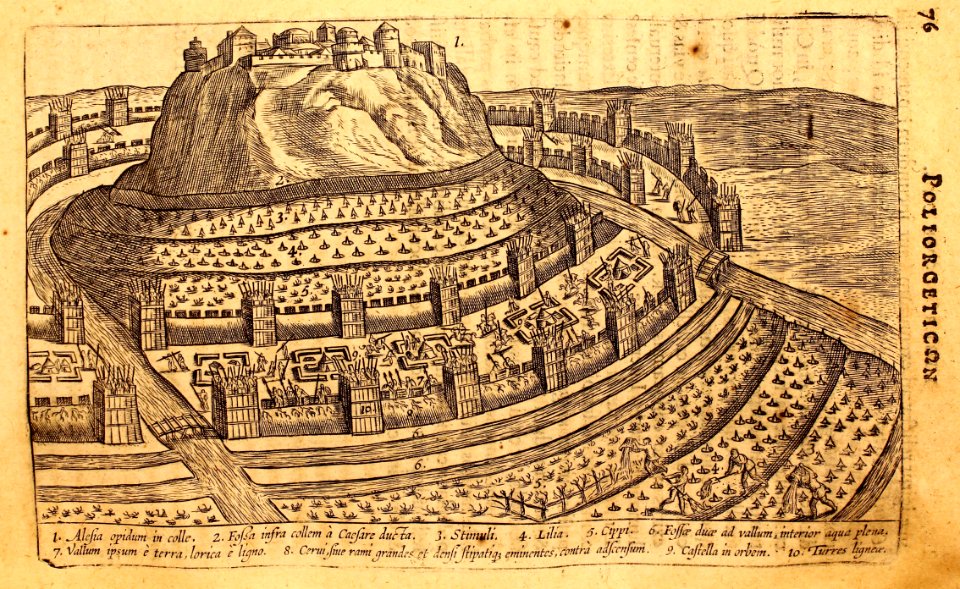 76
POLIORGETICΩN
1.
2.
3.
4.
6.
7.
8.
10.
6.
5.
4.
1. Alesia opidum in colle. 2. Fossa infra collem à Caesare ducta. 3. Stimuli. 4. Lilia. 5. Cippi. 6. Fossæ duæ ad vallum, interior aqua plena.
7. Vallum ipsum è terra, lorica è ligno. 8. Cerui, siue rami grandes et densi stipatiq; eminentes, contra adscensum. 9. Castella in orbem. 10. Turres ligneæ.